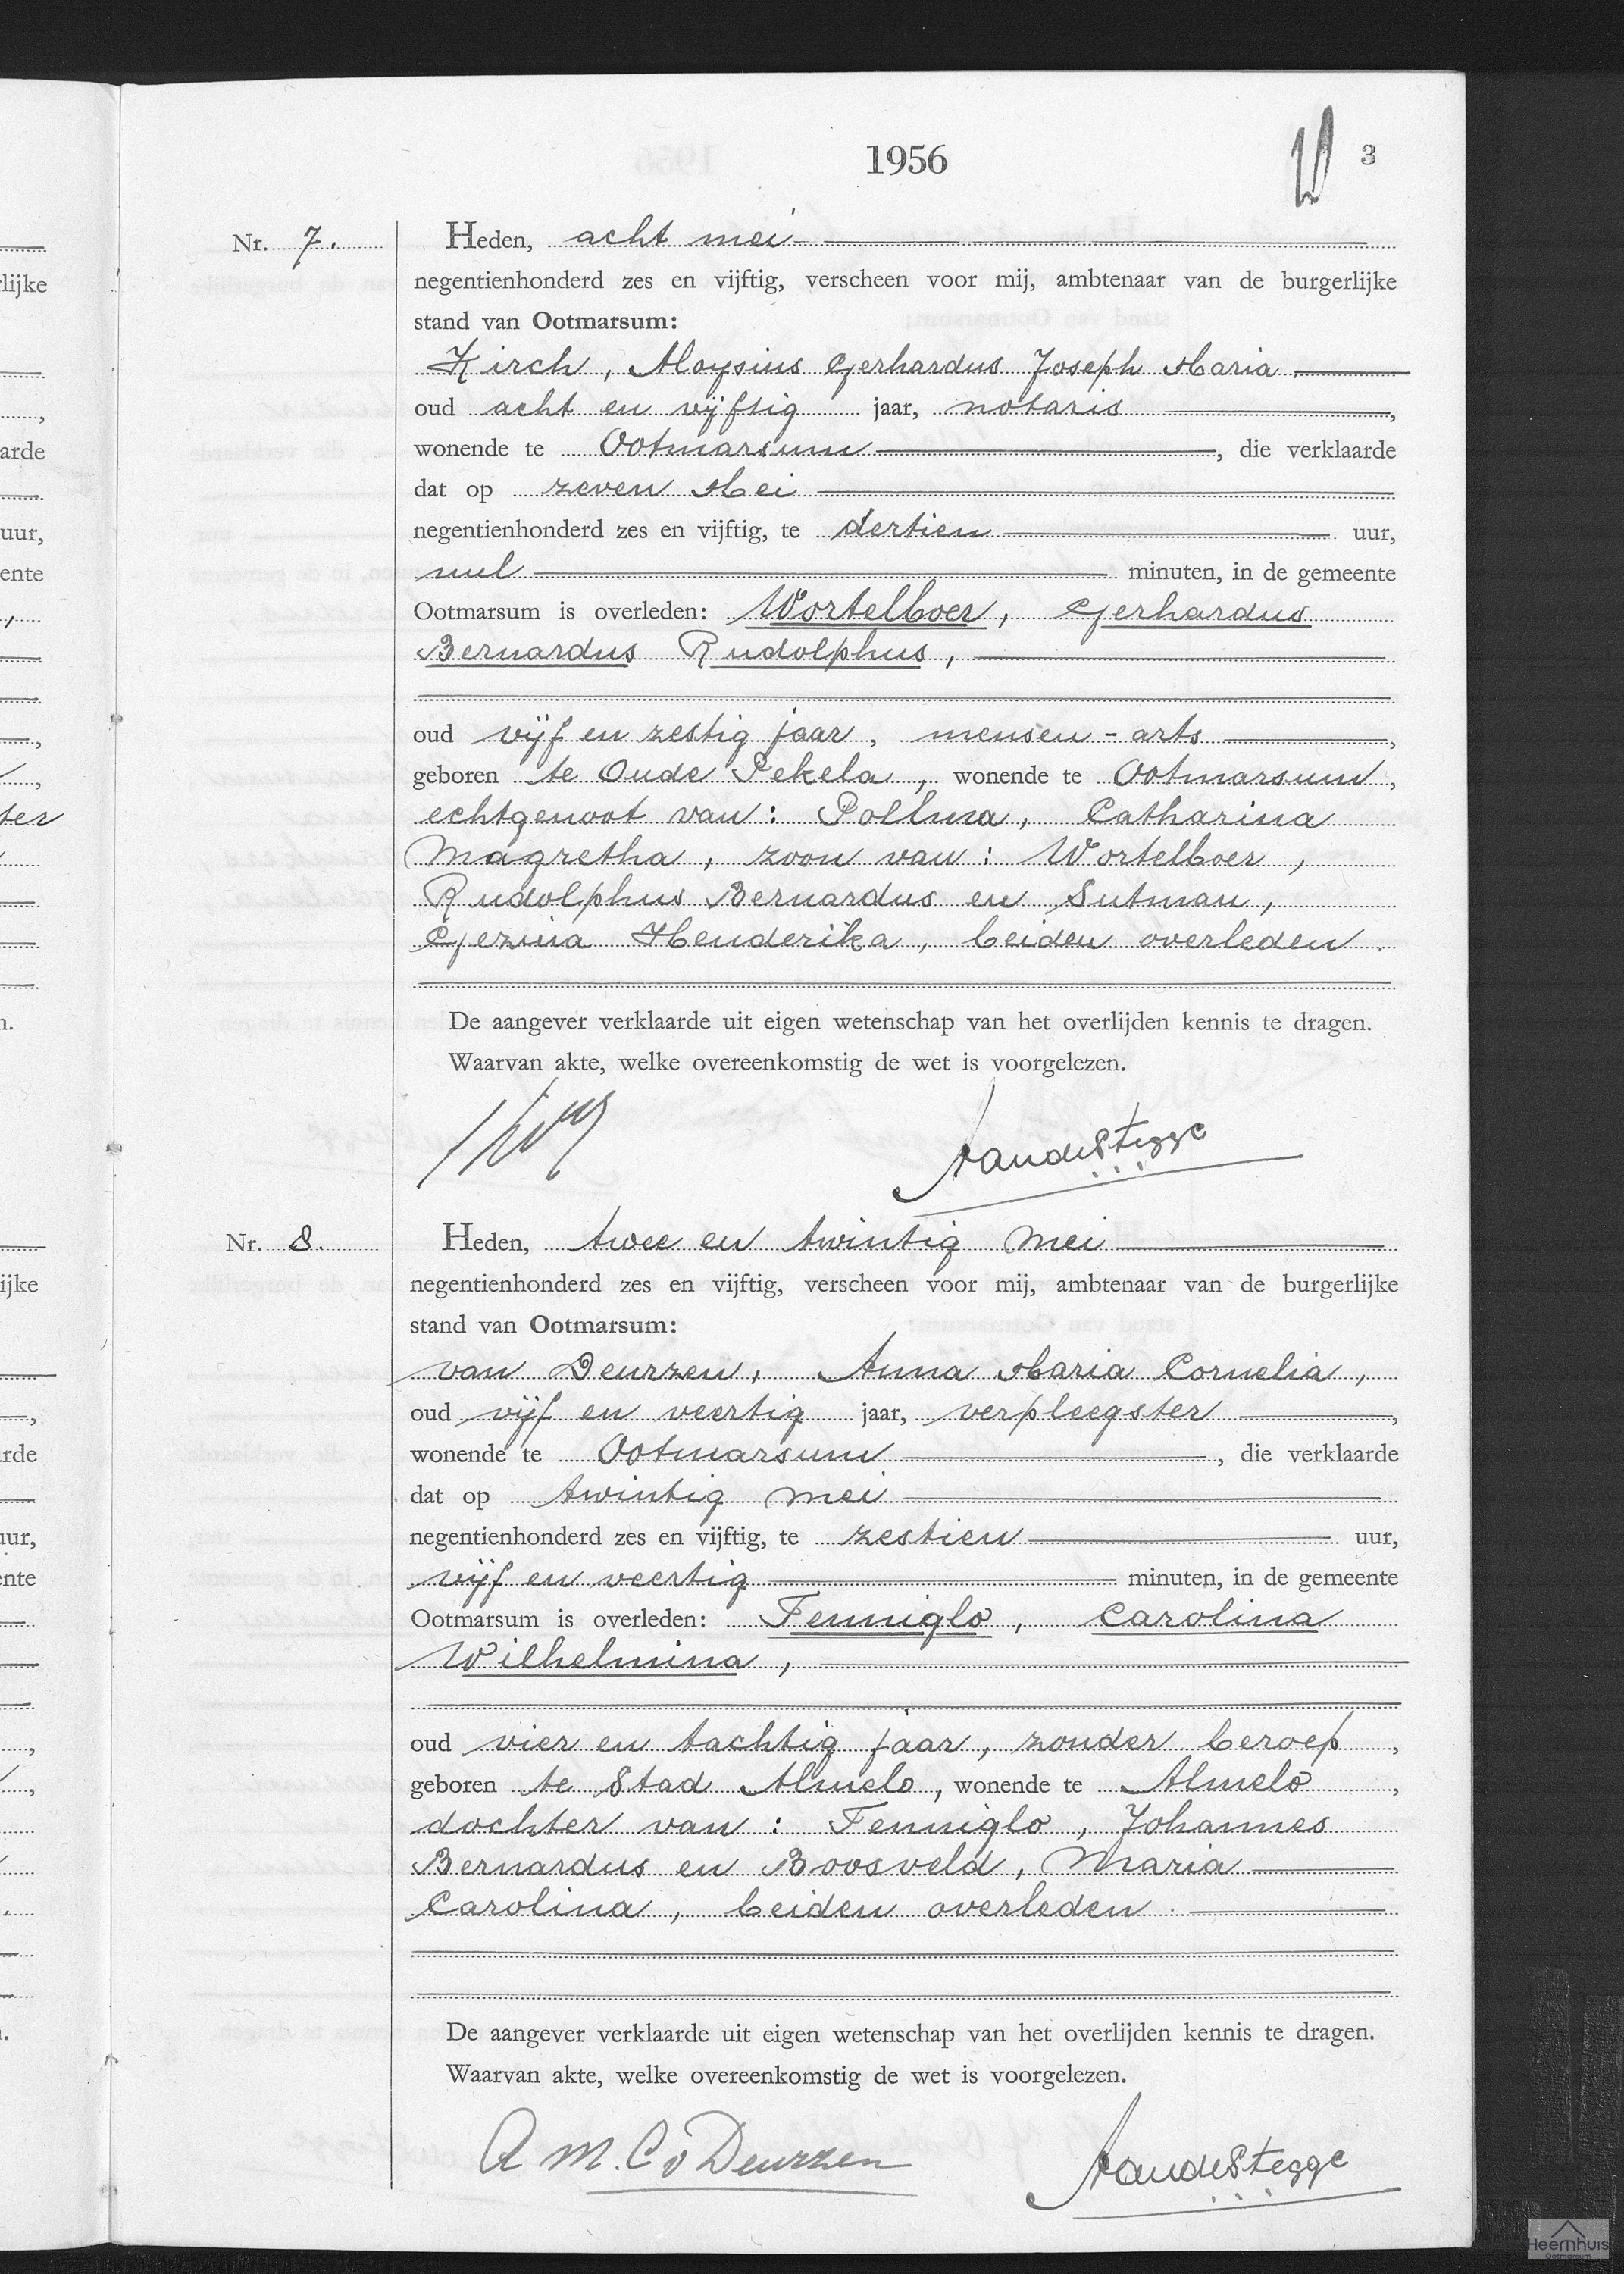 1956
3
Nr. 7.
Heden, acht mei
negentienhonderd zes en vijftig, verscheen voor mij, ambtenaar van de burgerlijke
stand van Ootmarsum:
Kirch, Aloysius Gerhardus Joseph Maria
oud acht en vijftig jaar, notaris,
wonende te Ootmarsum, die verklaarde
dat op zeven Mei
negentienhonderd zes en vijftig, te dertien uur,
nul minuten, in de gemeente
Ootmarsum is overleden: Wortelboer, Gerhardus
Bernardus Rudolphus,
oud vijf en zestig jaar, mensen-arts,
geboren te Oude Pekela, wonende te Ootmarsum,
echtgenoot van: Pollma, Catharina
Magretha, zoon van: Wortelboer,
Rudolphus Bernardus en Sutman,
Gezina Henderika, beiden overleden.
De aangever verklaarde uit eigen wetenschap van het overlijden kennis te dragen.
Waarvan akte, welke overeenkomstig de wet is voorgelezen.
Nr. 8.
Heden, twee en twintig mei
negentienhonderd zes en vijftig, verscheen voor mij, ambtenaar van de burgerlijke
stand van Ootmarsum:
van Deurzen, Anna Maria Cornelia,
oud vijf en veertig jaar, verpleegster,
wonende te Ootmarsum, die verklaarde
dat op twintig mei
negentienhonderd zes en vijftig, te zestien uur,
vijf en veertig minuten, in de gemeente
Ootmarsum is overleden: Fenniglo, Carolina
Wilhelmina,
oud vier en tachtig jaar, zonder beroep,
geboren te Stad Almelo, wonende te Almelo,
dochter van: Fenniglo, Johannes
Bernardus en Boosveld, Maria
Carolina, beiden overleden.
De aangever verklaarde uit eigen wetenschap van het overlijden kennis te dragen.
Waarvan akte, welke overeenkomstig de wet is voorgelezen.
A M. C v Deurzen
Heemhuis
Ootmarsum